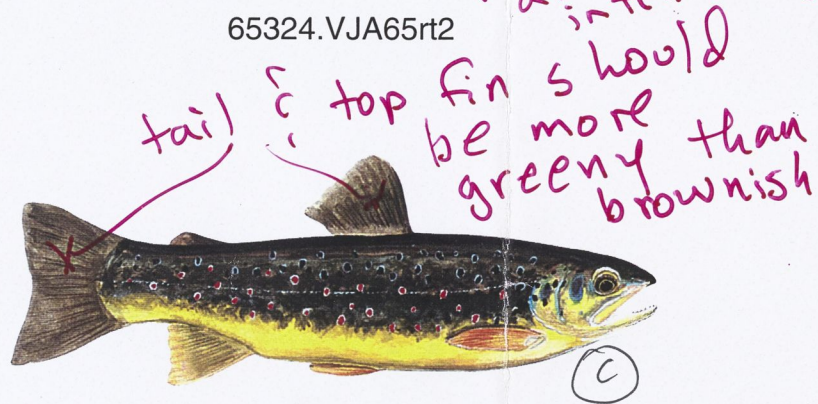 65324.VJA65rt2
tail & top fin should
be more
greeny than
brownish
C